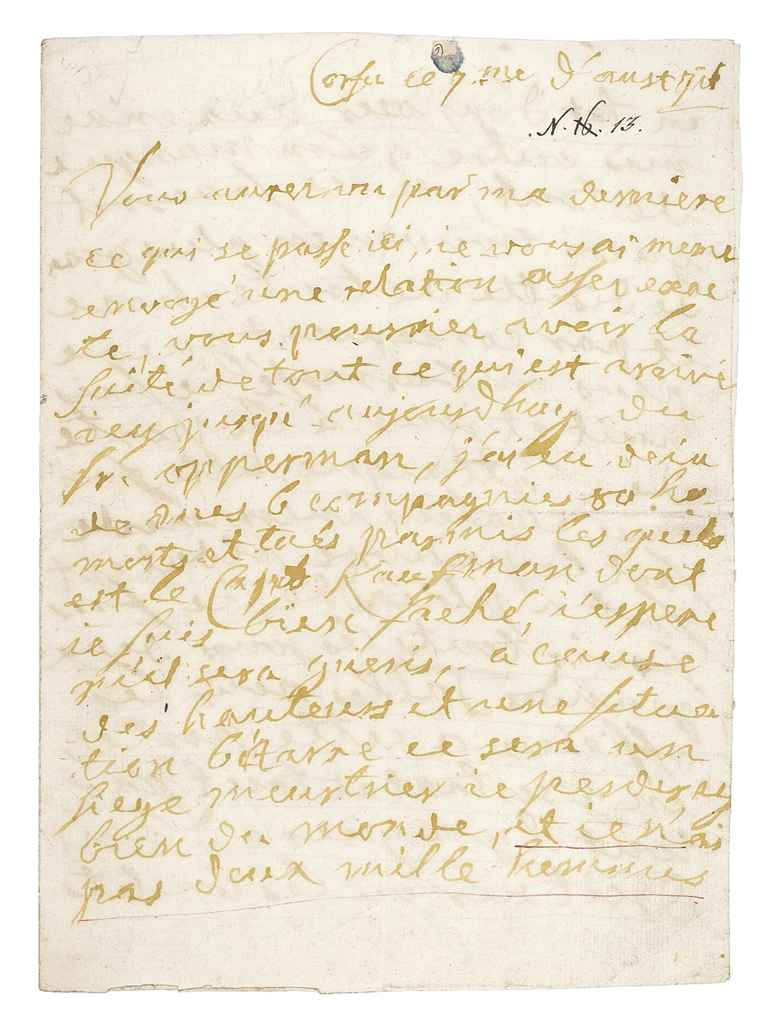 Corfu ce 7.me d'aust
N. 13.
Vous aurez vu par ma derniere
ce qui se passe ici, ie vous ai meme
envoyé une relation assez exac
te, vous pourriez avoir la
suite de tout ce qui est arrivé
icy jusqu' aujourdhuy du
Sr. opperman, j'ai eu deia
de mes 6 compagnies 80 ho
morts et tués parmis les quels
est le Capt Kaufman dont
ie suis bien faché, i'espere
qu'il sera gueris, a cause
des hauteurs et une situa
tion bizarre ce sera un
siege meurtrier ie perderay
bien du monde, et ie n'ai
pas deux mille hommes